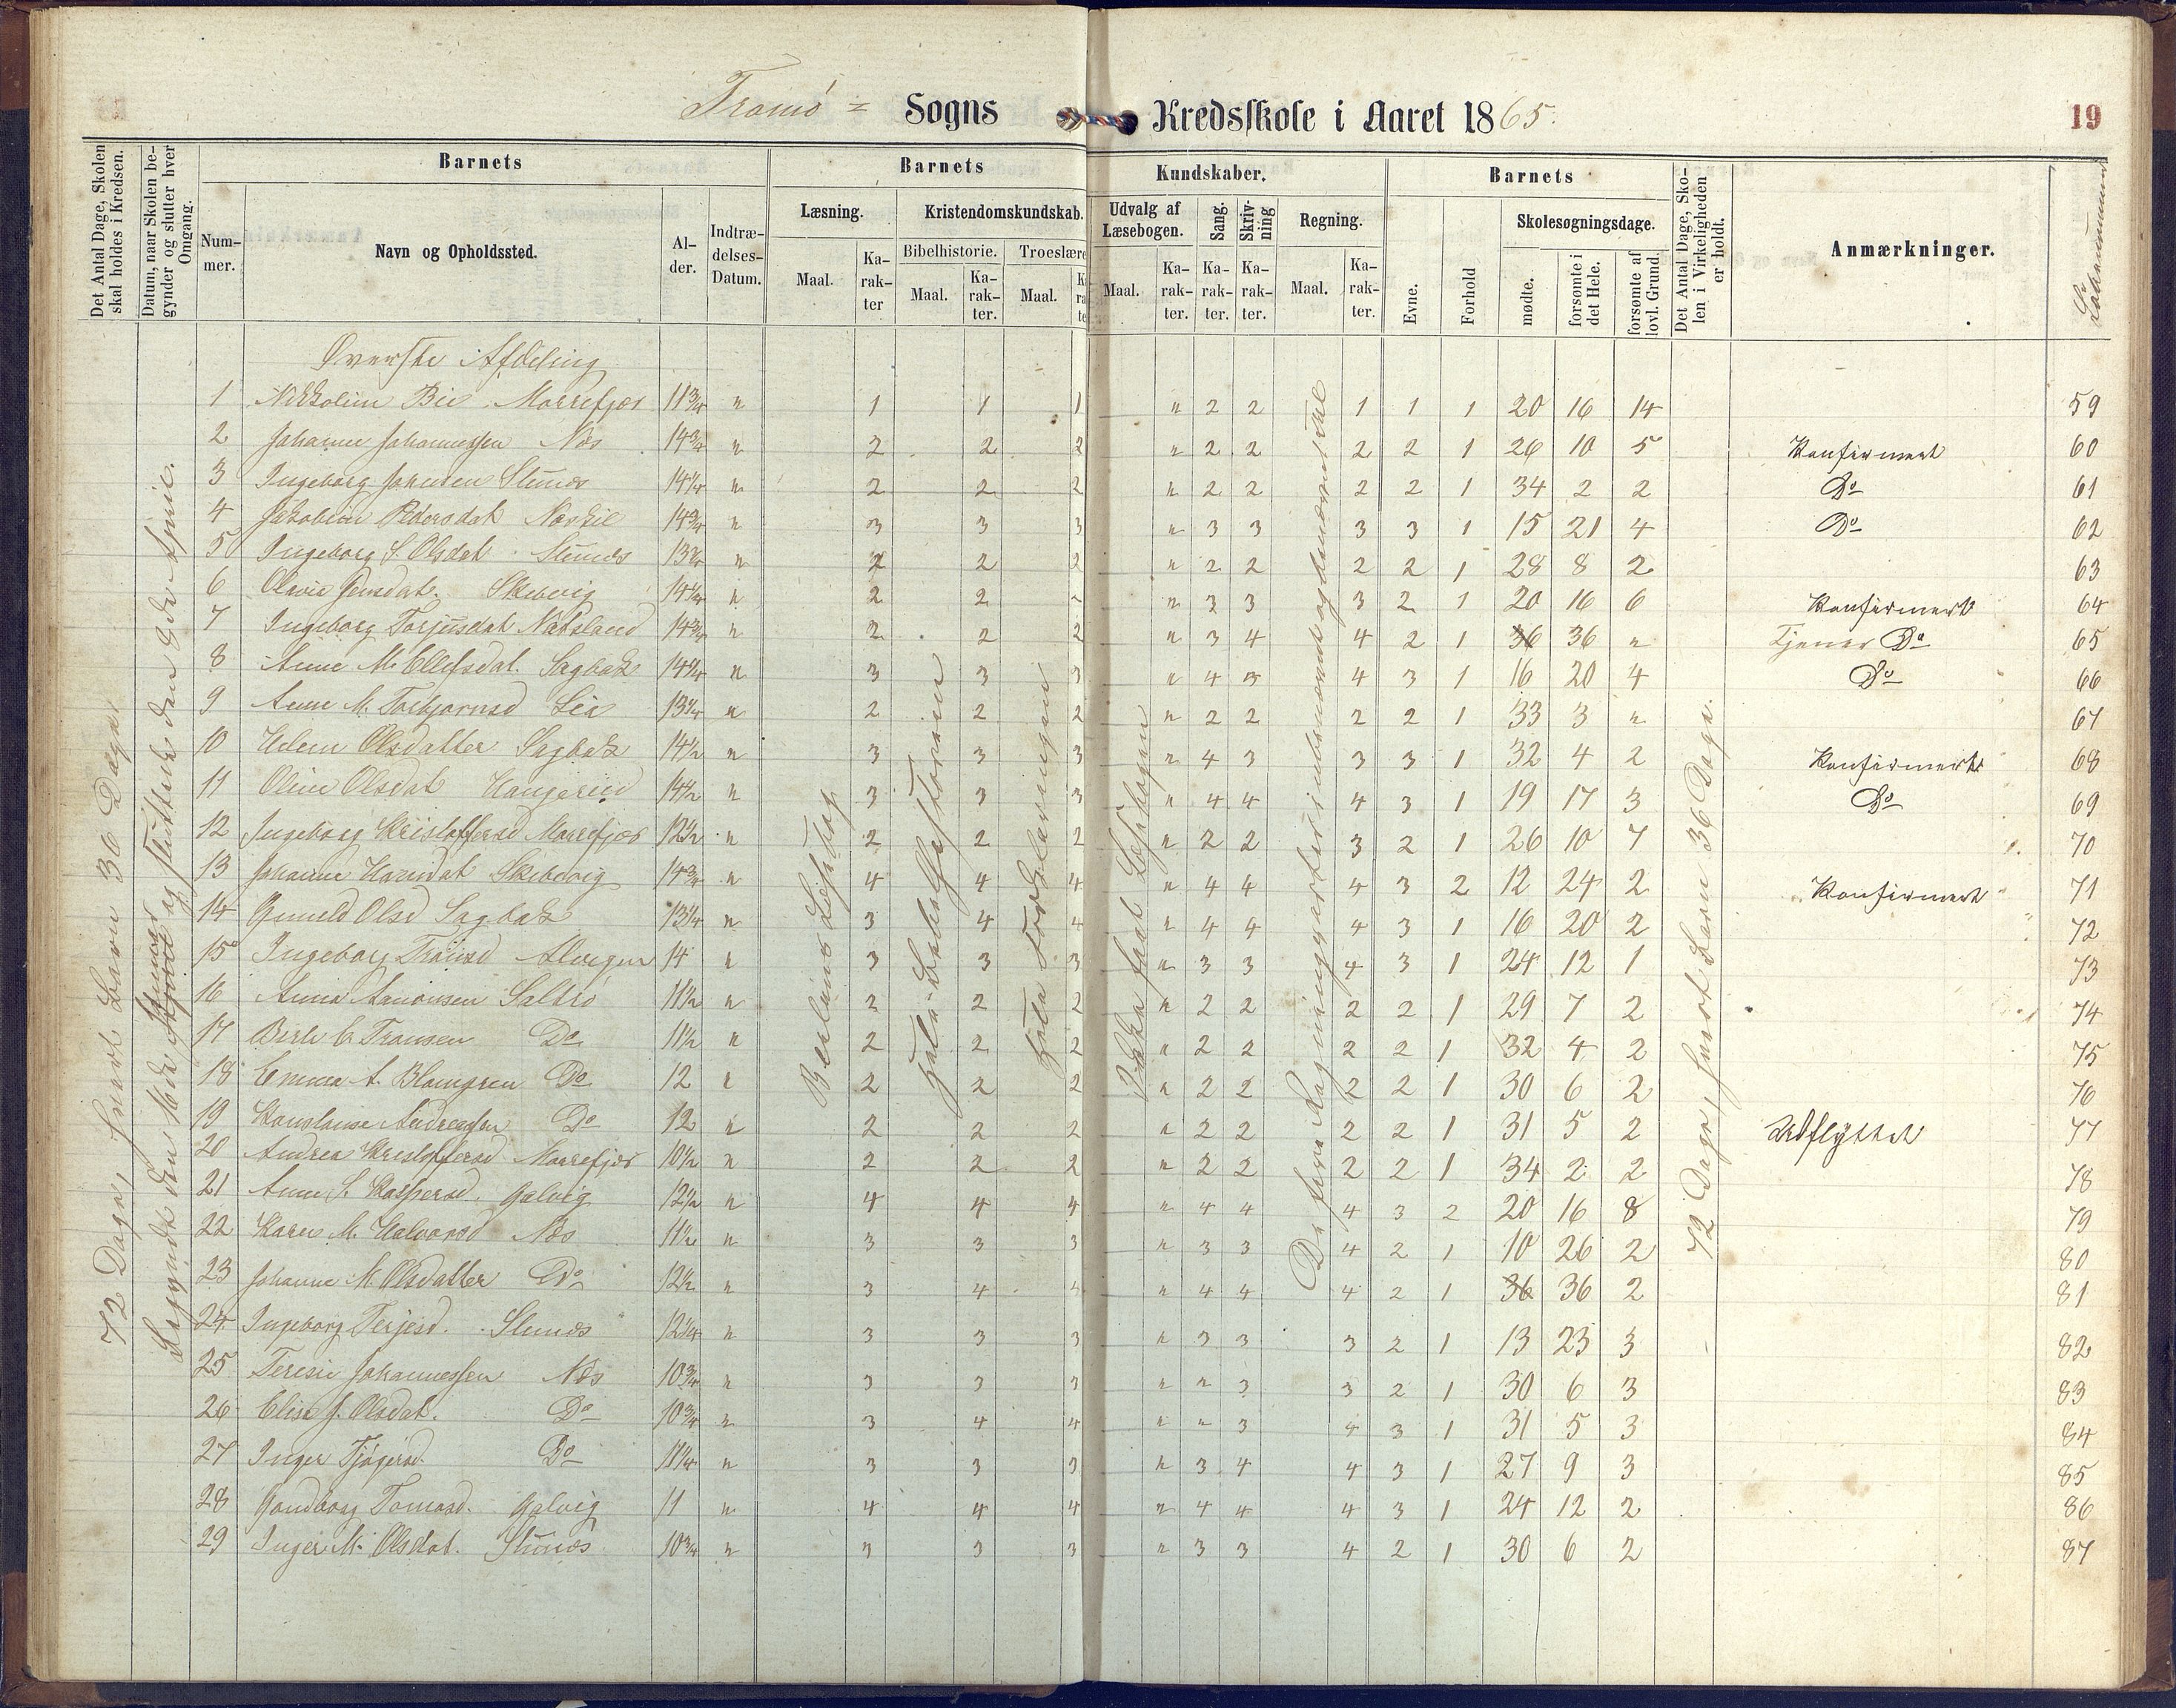 Tromö = Sogns Kredsskole i Aaret 1865.
19
Det Antal Dage, Skolen skal holdes i Kredsen.
Datum, naar Skolen begynder og slutter hver Omgang.
Barnets
Nummer.
Navn og Opholdssted.
Alder.
Indtrædelses-Datum.
Barnets Kundskaber.
Læsning.
Maal.
Karakter
Kristendomskundskab.
Bibelhistorie.
Maal.
Karakter.
Troeslære
Maal.
Udvalg af Læsebogen.
Maal.
Karakter.
Sang.
Karakter.
Skrivning
Karakter.
Regning.
Maal.
Karakter.
Barnets
Evne.
Forhold
Skolesøgningsdage.
mødte.
forsømte i det Hele.
forsømte af lovl. Grund.
Det Antal Dage, Skolen i Virkeligheden er holdt.
Anmærkninger.
Løbenummer
72 Dage, hvert Barn 36 Dage.
72 Dage, hvert Barn 36 Dage.
Øverste Afdeling
1 Nikoline Bie Morrefjær 11¾ " 1 1 1 " 2 2 1 1 1 20 16 14 59
2 Johanne Johannessen Næs 14¾ " 2 2 2 " 2 2 2 2 1 26 10 5 Konfirmert 60
3 Ingeborg Johnsen Stuenæs 14¼ " 2 2 2 " 2 2 2 2 1 34 2 2 Do 61
4 Jakobine Pedersdat Narvkil 14¾ " 3 3 3 " 3 3 3 3 1 15 21 4 Do 62
5 Ingeborg S. Olsdat Stuenæs " 2 2 2 " 2 2 2 2 1 28 8 2 63
6 Olavia Jensdat. Skibevig 14¼ " 2 2 " 3 3 3 2 1 20 16 6 Konfirmert 64
7 Ingeborg Torjusdat 14¾ " 2 2 2 " 3 4 4 2 1 36 36 " Tjener Do 65
8 Anne M. Ellefsdat. Sagbak 14¼ " 3 3 3 " 4 3 4 3 1 16 20 4 Do 66
9 Anne M. Torbjørnsd Lia 13¼ " 2 2 2 " 2 2 2 2 1 33 3 " 67
10 Helene Olsdatter Sagbak 14½ " 3 3 3 " 4 3 3 3 1 32 4 2 Konfirmert 68
11 Oline Olsdat 14½ " 3 3 3 " 4 4 4 3 1 19 17 3 Do 69
12 Ingeborg Kristoffersd Morrefjær 12½ " 2 2 2 " 2 2 3 2 1 26 10 7 70
13 Johanne Skibevig 14¾ " 4 4 4 " 4 4 4 3 2 12 24 2 Konfirmert 71
14 Gunild Olsd Sagbak 13¼ " 3 4 4 " 4 4 4 3 1 16 20 2 72
15 Ingeborg Alvigen 14 " 3 3 3 " 3 3 4 3 1 24 12 1 73
16 Anna Aanonsen Saltrö 11½ " 2 2 2 " 2 2 2 2 1 29 7 2 74
17 Berte Do 11½ " 2 2 2 " 2 2 2 2 1 32 4 2 75
18 Emma A. Blomgren Do 12 " 2 2 2 " 2 2 2 2 1 30 6 2 76
19 Konstanse Andreassen Do 12 " 2 2 2 " 2 2 2 2 1 31 5 2 Udflyttet 77
20 Andrea Kristoffersd Morrefjær 10½ " 2 2 2 " 2 2 2 2 1 34 2 2 78
21 Anne S. Kaspersd. Galvig 12½ " 4 4 4 " 4 4 4 3 2 20 16 8 79
22 Karen M. Halvorsd Næs 11½ " 3 3 3 " 3 3 4 2 1 10 26 2 80
23 Johanne M. Olsdatter Do 12½ " 3 4 4 " 4 4 4 2 1 36 36 2 81
24 Ingeborg Terjesd. Stuenæs 12¼ " 3 3 3 " 3 3 3 2 1 13 23 3 82
25 Teresie Johannessen Næs 10¾ " 3 3 3 " " 3 3 2 1 30 6 3 83
26 Elise J. Olsdat. Do 10¾ " 3 4 4 " " 3 4 3 1 31 5 3 84
27 Inger Do 11¼ " 3 3 3 " 3 4 4 3 1 27 9 3 85
28 Gundborg Tomasd. Galvig 11 " 4 4 4 " 4 4 4 3 1 24 12 2 86
29 Inger M. Olsdat. Stuenæs 10¾ " 3 3 3 " 3 3 4 2 1 30 6 2 87